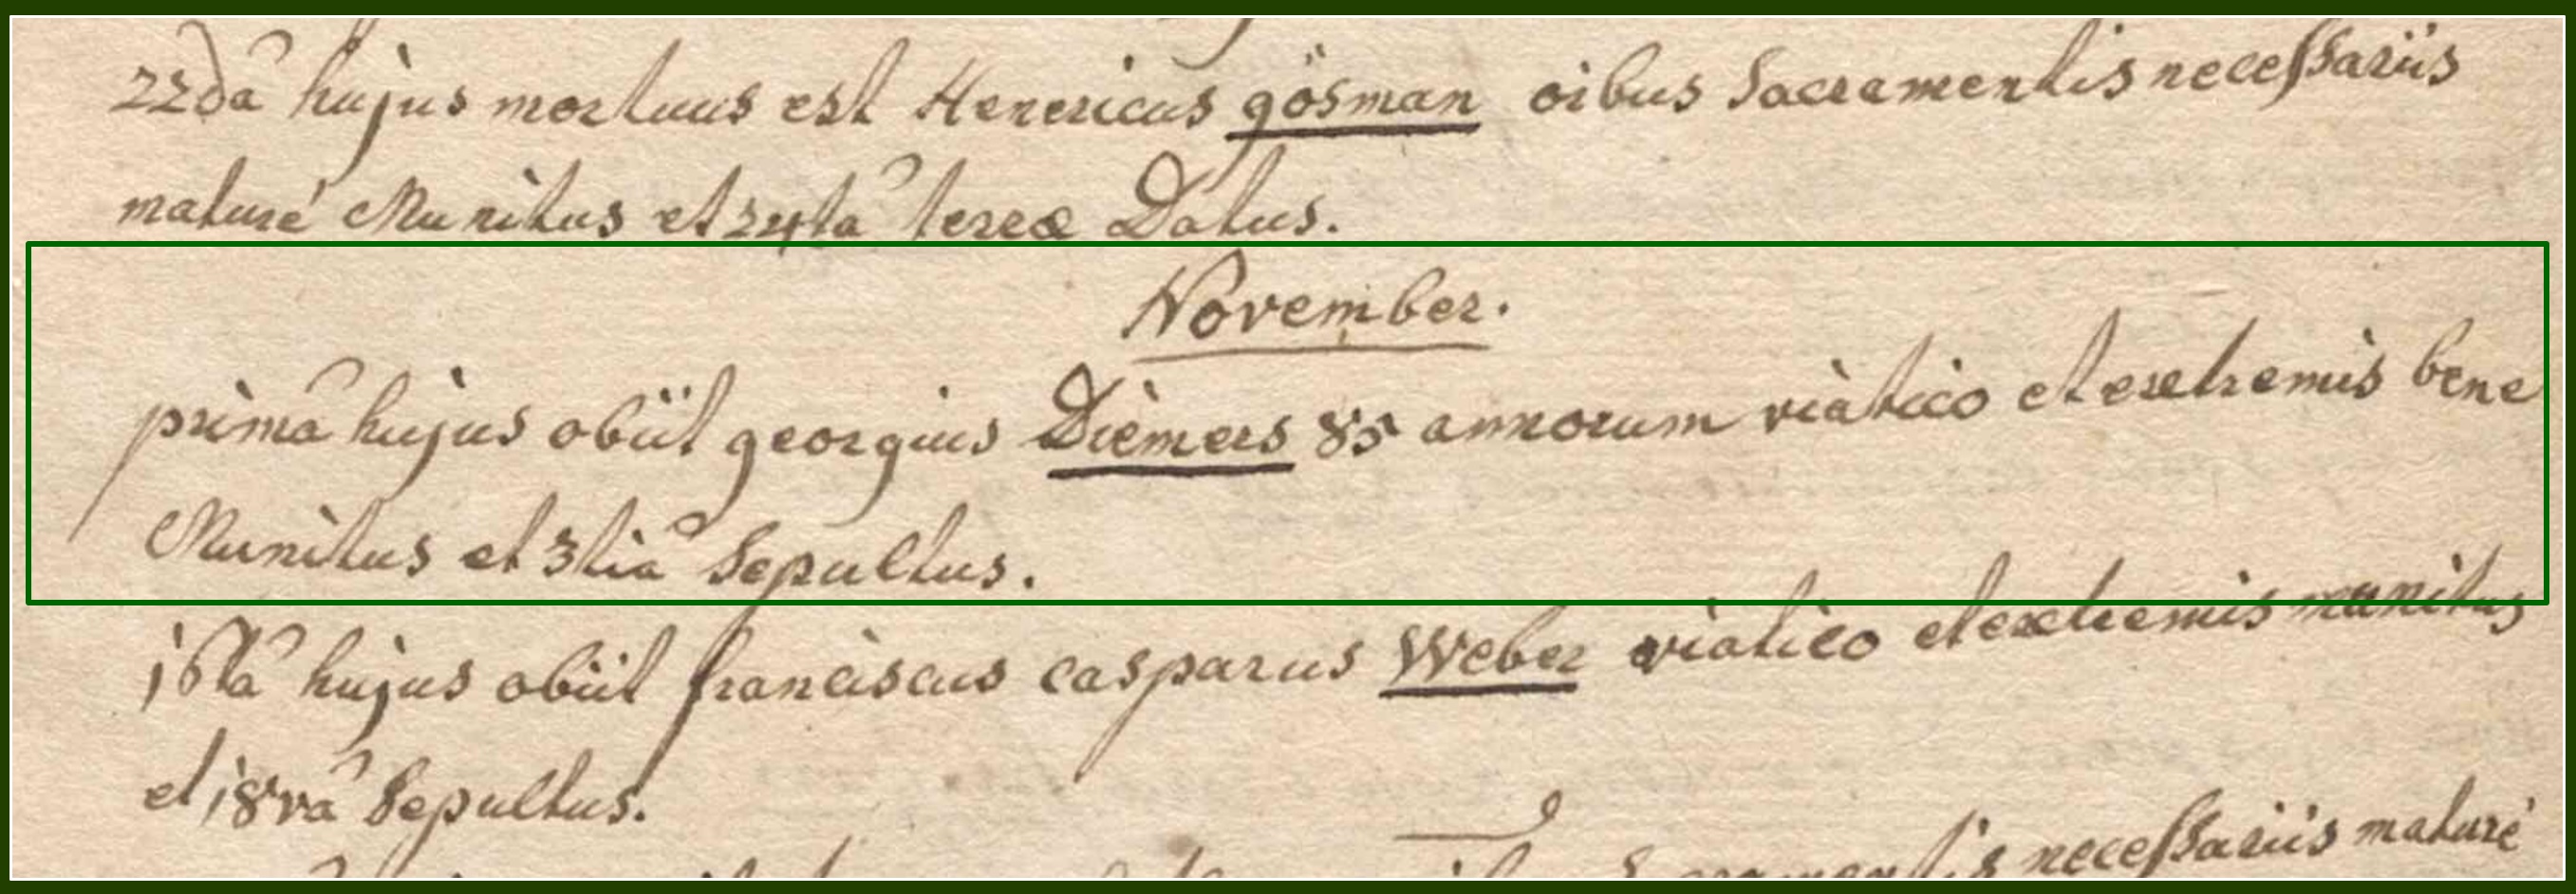 22da hujus mortuus est Henericus gösman oibus Sacramentis necessariis
maturé Munitus et 24ta terræ Datus.
November.
prima hujus obiit georgius Diemers 85 annorum viatico et extremis bene
Munitus et 3tia Sepultus.
16ta hujus obiit franciscus casparus Weber viatico et extremis munitus
et 18va Sepultus.
necessariis maturé